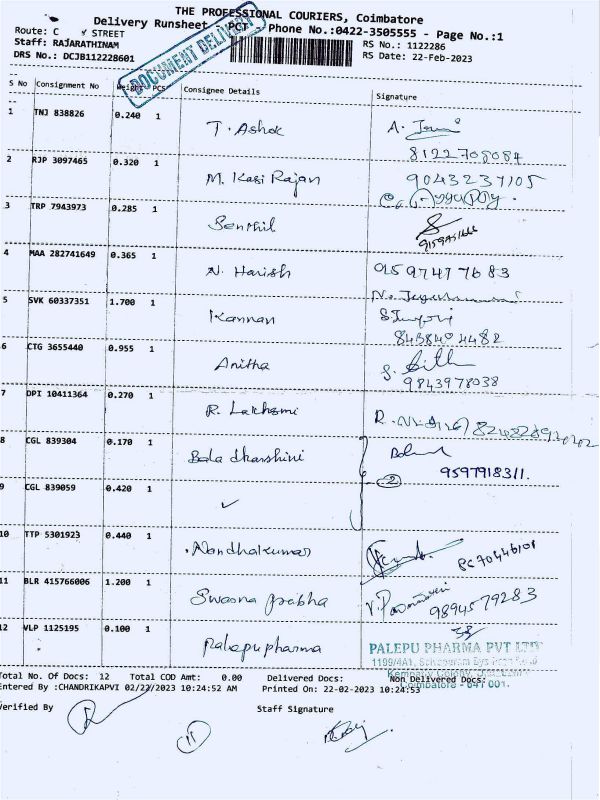 THE PROFESSIONAL COURIERS, Coimbatore
Delivery Runsheet - PCT, Phone No.:0422-3505555 - Page No.:1
Route: C STREET
RS No.: 1122286
Staff: RAJARATHINAM
RS Date: 22-Feb-2023
DRS No.: DCJB112228601
DOCUMENT DELIVERY
S No Consignment No Weight PCS Consignee Details Signature
1 TNJ 838826 0.240 1 T. Ashok A.
8122708084
2 RJP 3097465 0.320 1 M. Kasi Rajan 9043237105
3 TRP 7943973 0.285 1 Senthil
4 MAA 282741649 0.365 1 N. Harish
5 SVK 60337351 1.700 1 Kannan
8438404482
6 CTG 3655440 0.955 1 Anitha
9843978038
7 DPI 10411364 0.270 1 R. Lakhsmi R.
8 CGL 839304 0.170 1 Bala dharshini
2 9597918311.
9 CGL 839059 0.420 1 ✓
10 TTP 5301923 0.440 1 Nandhakumar
11 BLR 415766006 1.200 1 Swarna prabha
9894579283
12 VLP 1125195 0.100 1 Palepu pharma PALEPU PHARMA PVT LTD
1199/4A1,
Coimbatore - 641 001.
Total No. Of Docs: 12 Total COD Amt: 0.00 Delivered Docs: Non Delivered Docs:
Entered By :CHANDRIKAPVI 02/22/2023 10:24:52 AM Printed On: 22-02-2023 10:24:53
Verified By Staff Signature
11